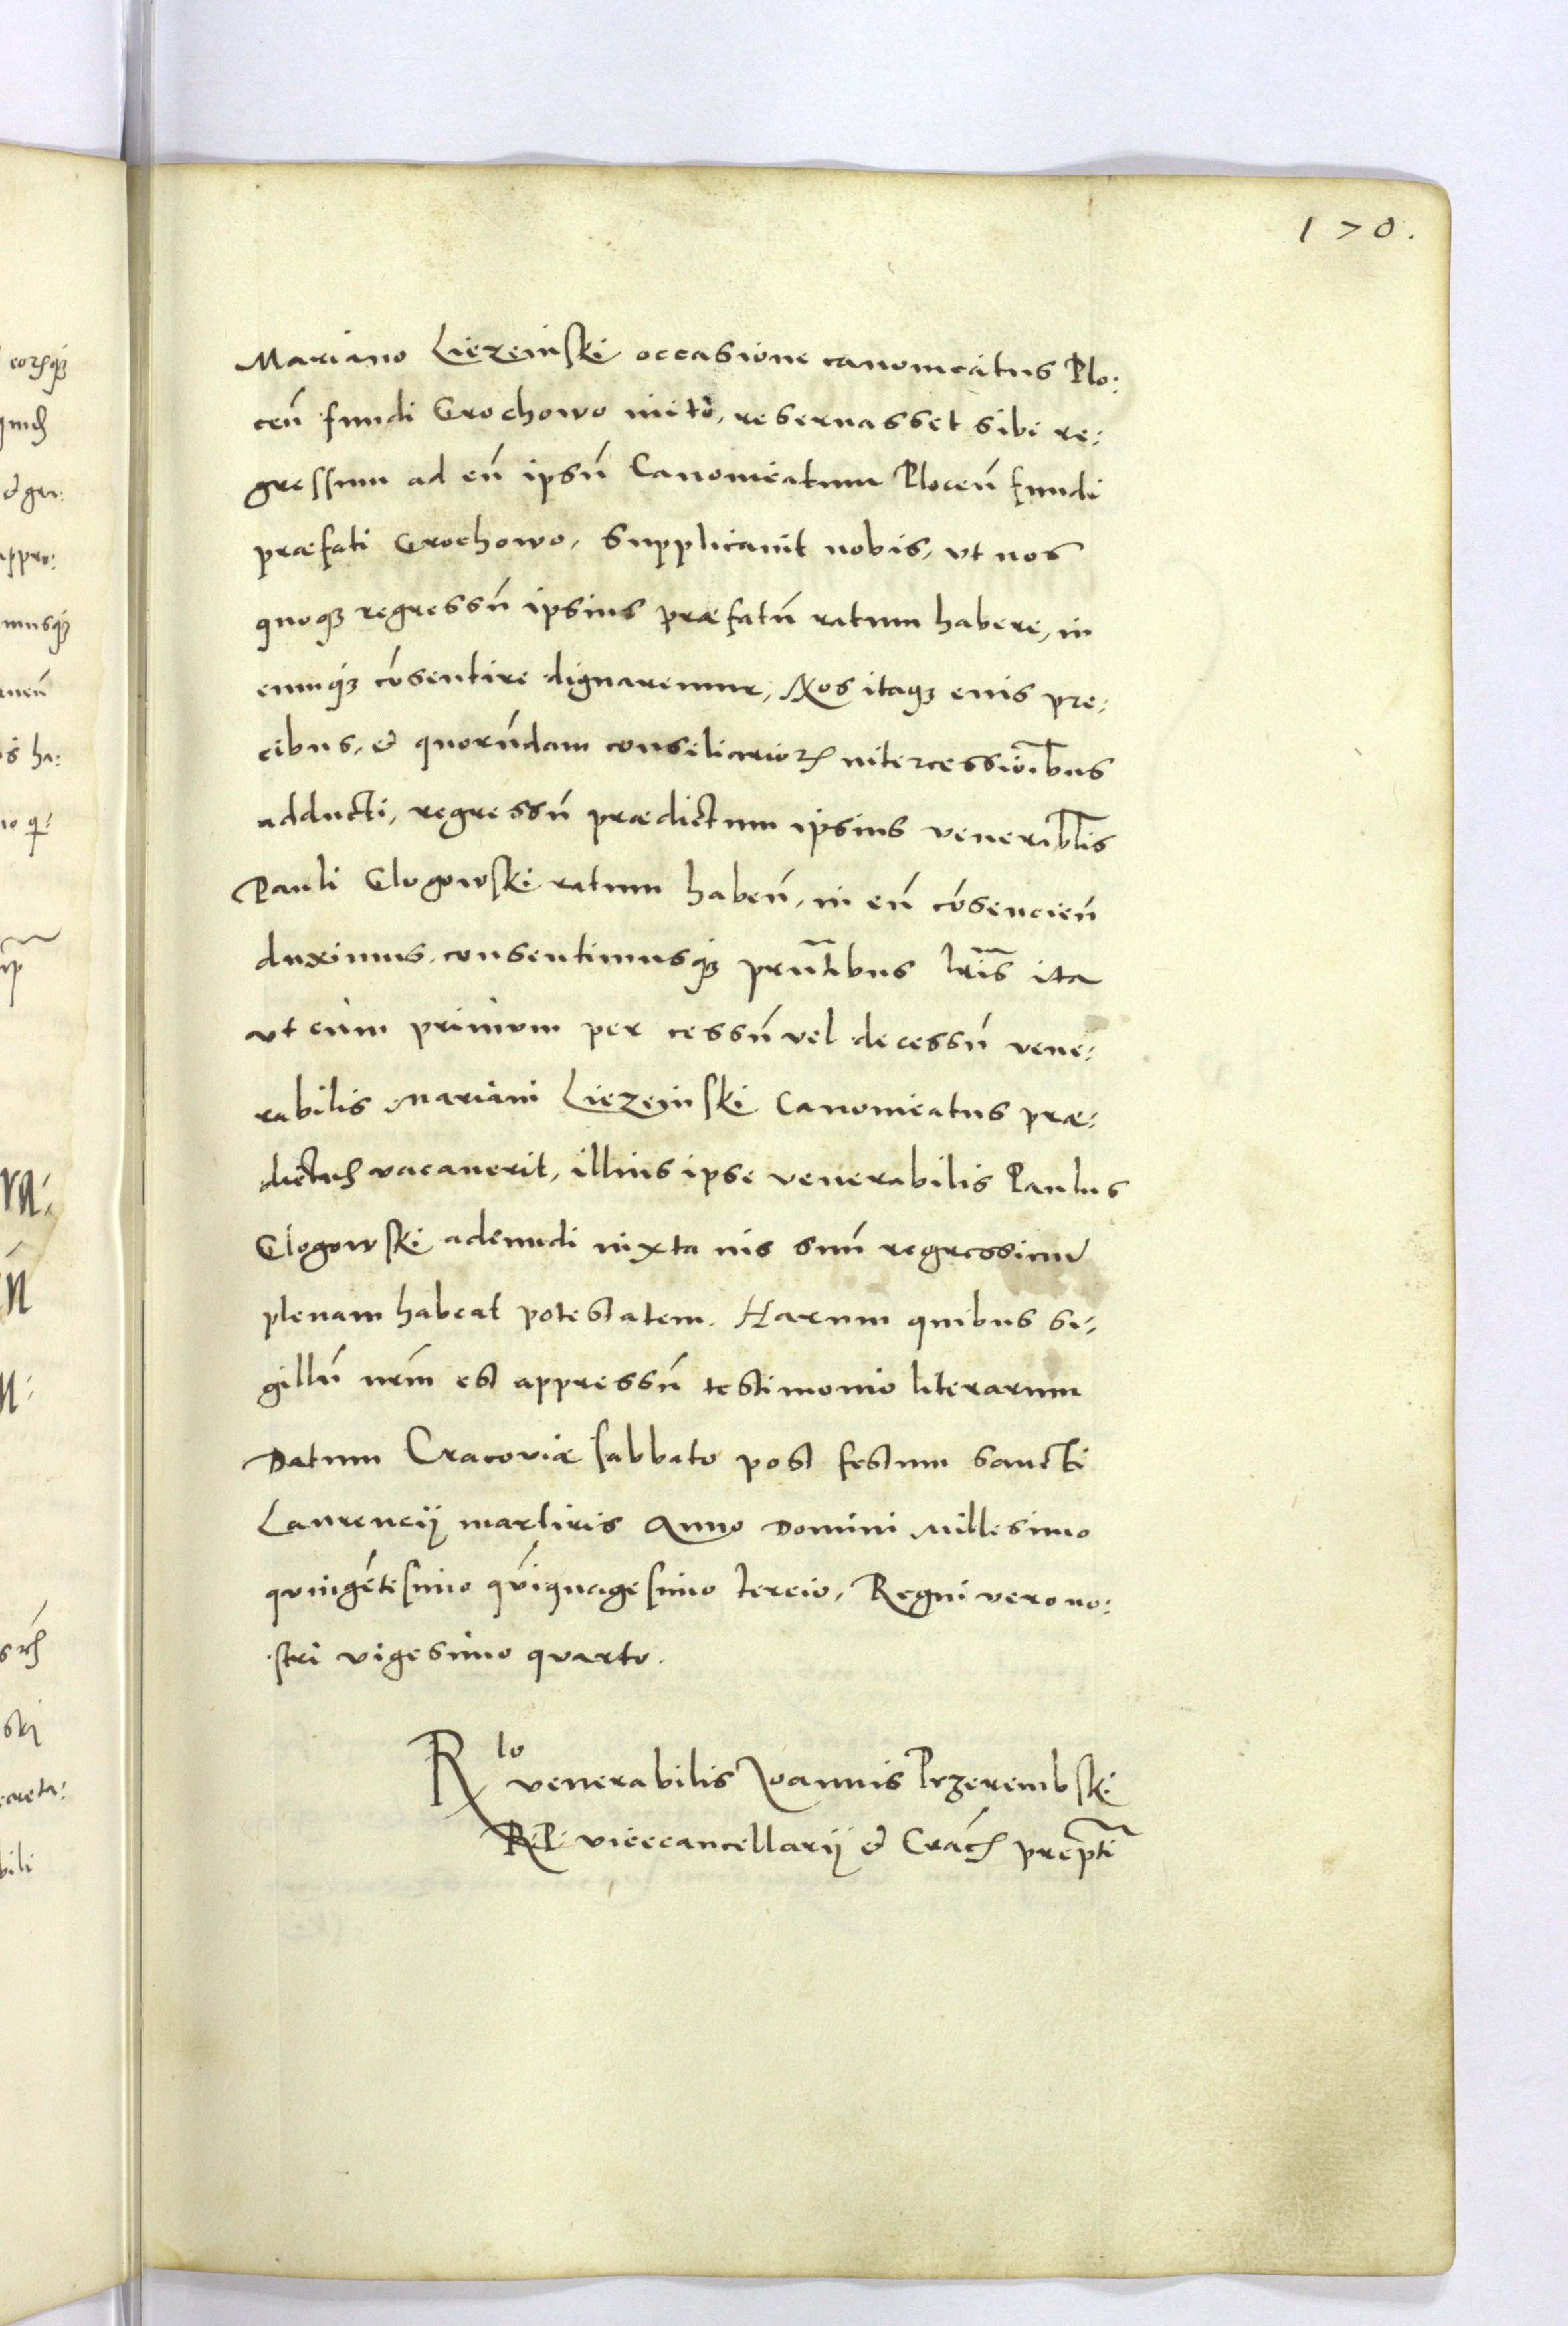 170.
Mariano Liezeinski occasione canonicatus Plo:
ceñ fundi Grochowo inito, reseruasset sibi re:
gressum ad eũ ipsũ Canonicatum Ploceñ fundi
præfati Grochowo, Supplicauit nobis, vt nos
quoqꝫ regressũ ipsius præfatũ ratum habere, in
eumqꝫ cõsentire dignaremur, Nos itaqꝫ euis pre:
cibus, et quorũdam consiliarioꝝ intercessioĩbus
adducti, regressũ prædictum ipsius veneriblis
Pauli Glogowski ratum habeñ, in eũ cõsencieñ
duximus, consentimusqꝫ prñtibus lr̃is ita
vt cum primum per cessũ vel decessũ vene:
rabilis Mariani Liezeinski Canonicatus præ:
dictus vacauerit, illius ipse venerabilis Paulus
Glogowski adeundi iuxta uis suũ regressiuũ
plenam habeat potestatem. Harum quibus si:
gillũ nr̃m est appressũ testimonio literarum
Datum Cracoviæ sabbato post festum sancti
Laurencij martiris Anno Domini Millesimo
quingẽtesimo qũiquagesimo tercio, Regni vero no:
stri vigesimo quarto.
Rlo venerabilis Joannis Przerembski
R. P. vicecancellarij et Crac̃ prep̃ti
corꝝqꝫ
appro:
musqꝫ
is ha:
ski
creta:
bili